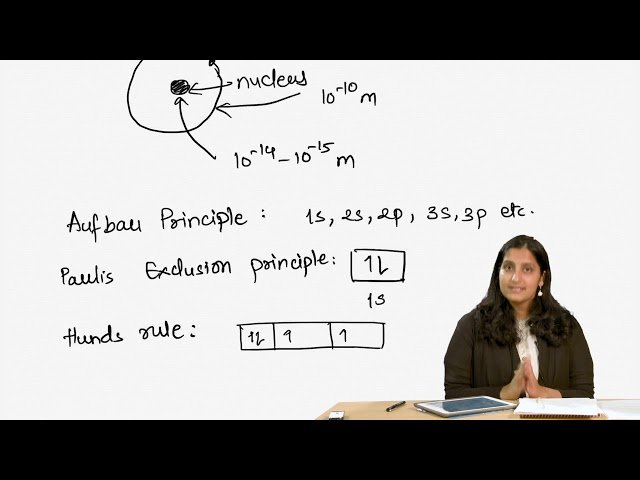 nucleus
10⁻¹⁰ m
10⁻¹⁴ – 10⁻¹⁵ m
Aufbau Principle : 1s, 2s, 2p, 3s, 3p etc.
Paulis Exclusion principle : 1L
1s
Hunds rule : 1L 1 1